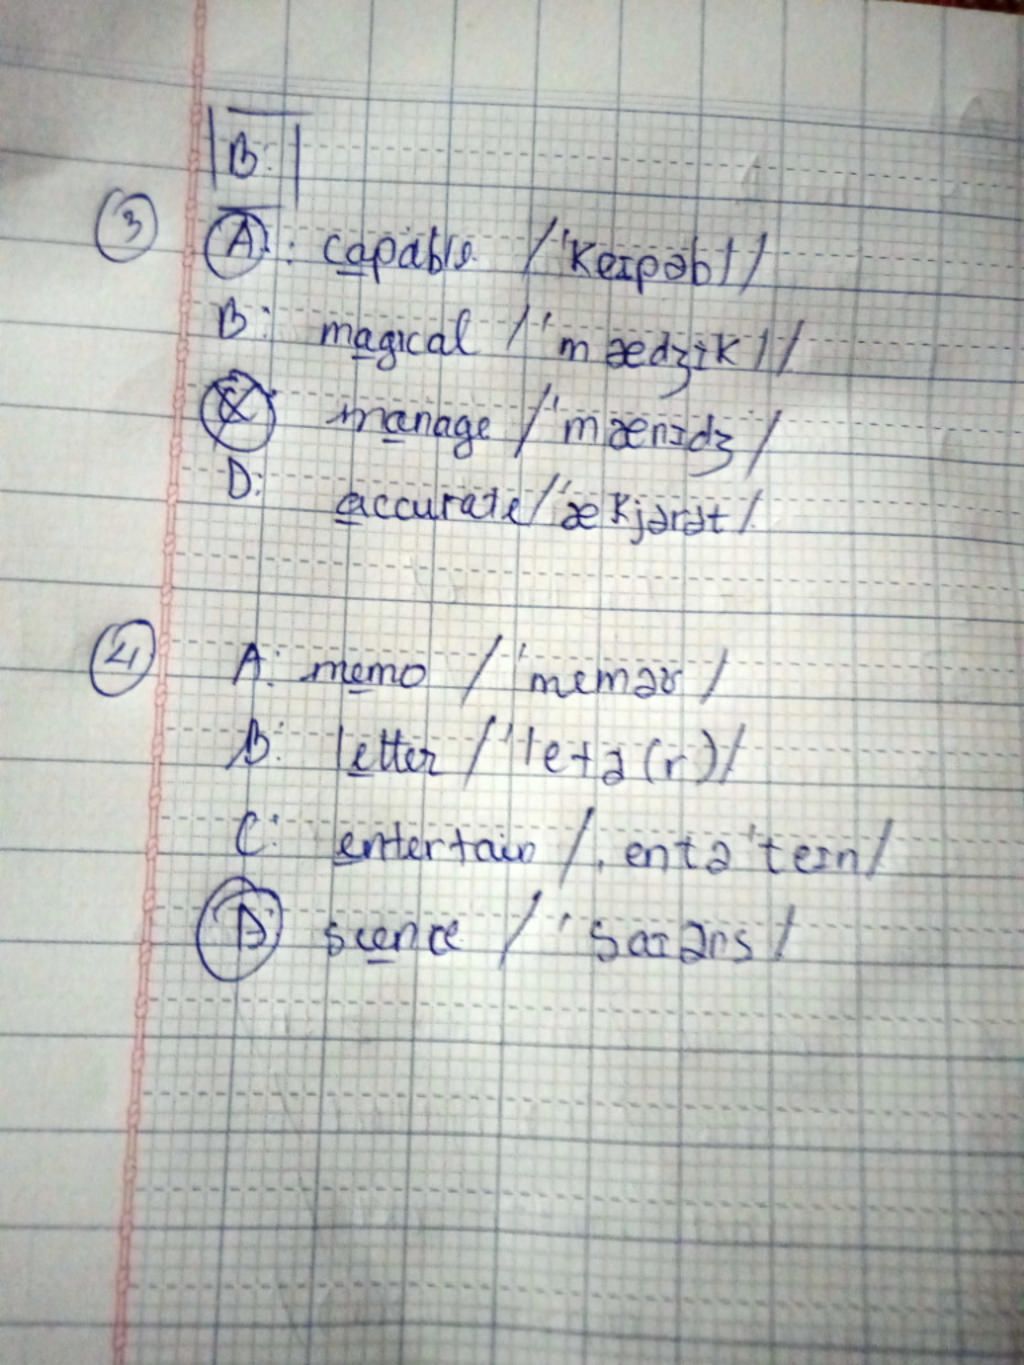 B:
3 A: capable /'keɪpəbl/
B: magical /'mædʒɪkl/
C manage /'mænɪdʒ/
D: accurate /'ækjərət/
4 A: memo /'meməʊ/
B: letter /'letə(r)/
C: entertain /ˌentə'teɪn/
D science /'saɪəns/